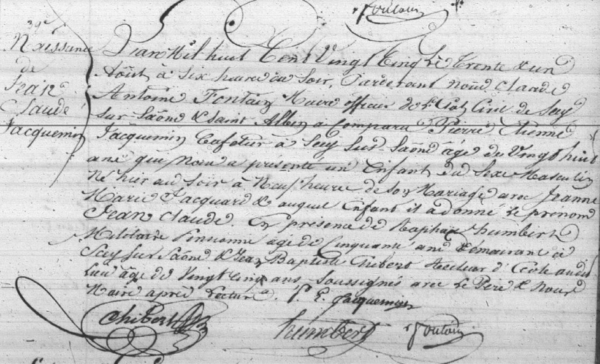 Naissance
de
Jean
Claude
Jacquemin
L'an Mil huit Cent Vingt Cinq le trente un
Août, à Six heure du Soir, Pardevant nous Claude
Antoine Fontain Maire officier de l'état Civil de Scey
Sur Saône & Saint Albin à Comparu Pierre Etienne
Jacquemin à Scey Sur Saône âgé de Vingt huit
ans qui Nous a présenté un Enfant du Sexe Masculin
Né hier au Soir à Neuf heure de Son Mariage avec Jeanne
Marie Jacquard & auquel Enfant il a donné le prenom
Jean Claude. En présence de Raphael humbert
Militaire Pensionné âgé de Cinquante ans Demeurant à
Scey Sur Saône & Jean Baptiste Chibert Recteur d'Ecole audit
Lieu âgé de Vingt Cinq ans, Soussignés avec le Père & Nous
Maire après Lecture. P. E. Jacquemin
Chibert humbert Foutain